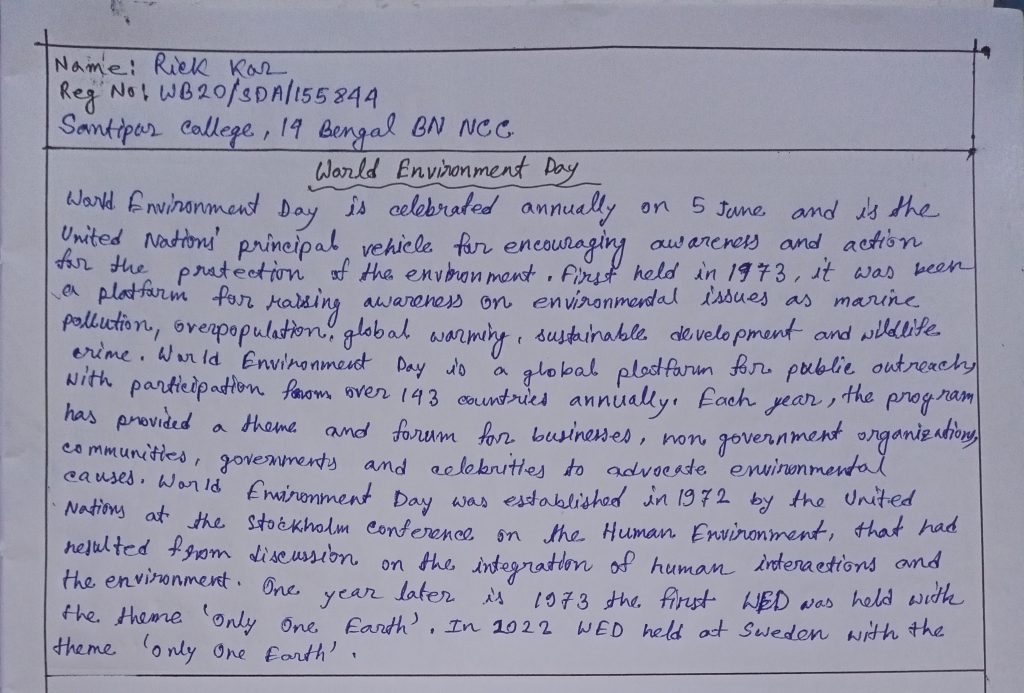 Name: Rick Kar
Reg No: WB20/SDA/155844
Santipur College, 19 Bengal BN NCC
World Environment Day
World Environment Day is celebrated annually on 5 June and is the
United Nations' principal vehicle for encouraging awareness and action
for the protection of the environment. First held in 1973, it was been
a platform for raising awareness on environmental issues as marine
pollution, overpopulation, global warming, sustainable development and wildlife
crime. World Environment Day is a global platform for public outreach,
with participation from over 143 countries annually. Each year, the program
has provided a theme and forum for businesses, non government organizations,
communities, governments and celebrities to advocate environmental
causes. World Environment Day was established in 1972 by the United
Nations at the Stockholm conference on the Human Environment, that had
resulted from discussion on the integration of human interactions and
the environment. One year later is 1973 the first WED was held with
the theme 'Only One Earth'. In 2022 WED held at Sweden with the
theme 'only One Earth'.